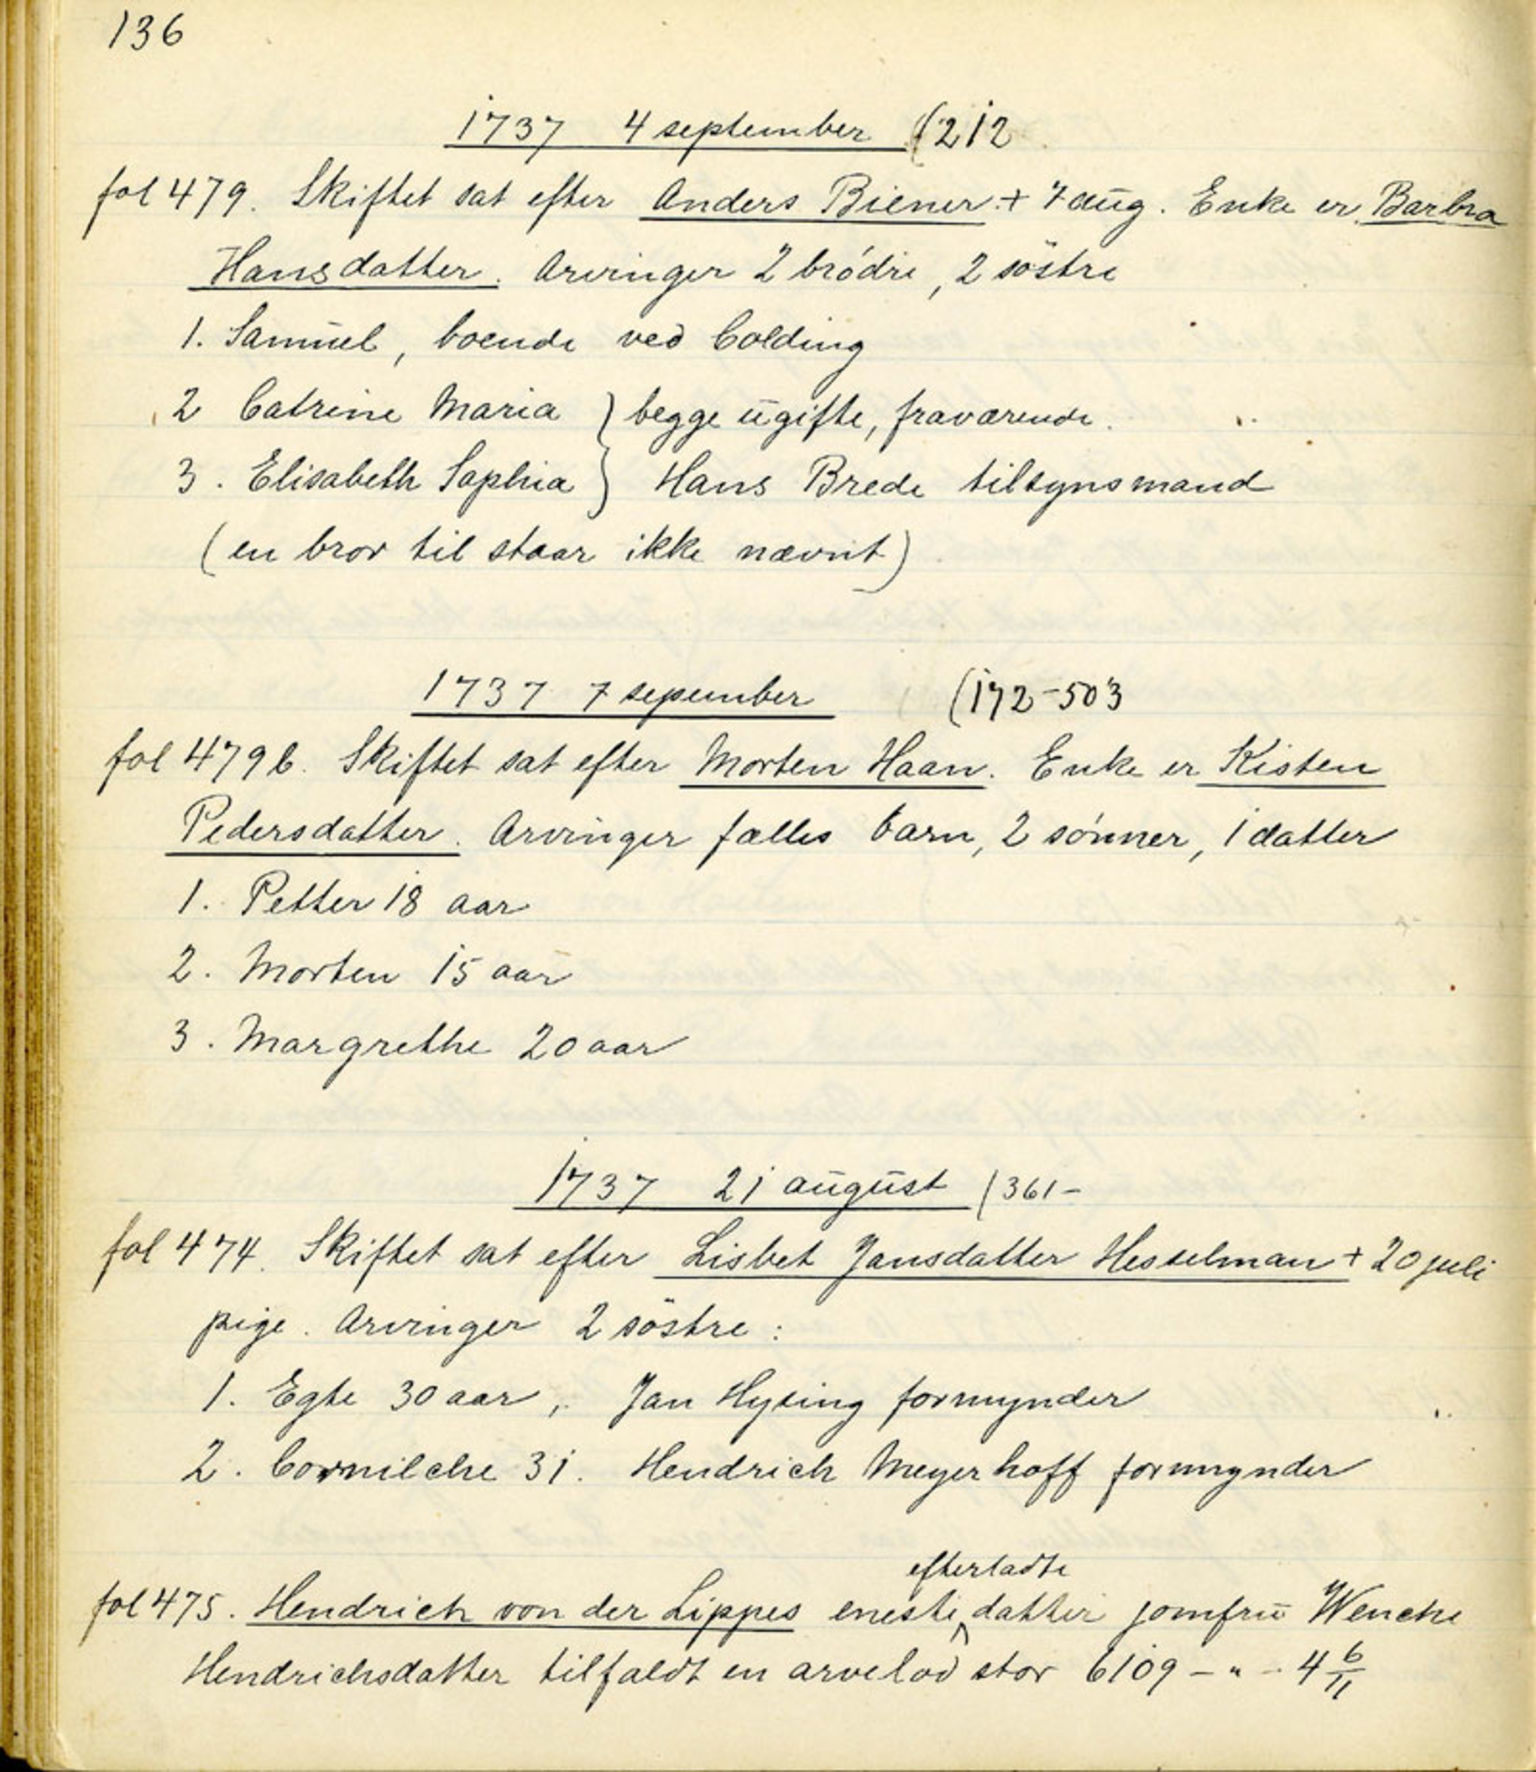 136
1737 4 september (212
fol 479. Skiftet sat efter Anders Biener + 7 aug. Enke er Barbra
Hansdatter. Arvinger 2 brödre, 2 söstre
1. Samuel, boende ved Colding
2 Catrine Maria } begge ugifte, fraværende.
3. Elisabeth Sophia } Hans Brede tilsynsmand
(en bror til staar ikke nævnt)
1737 7 sepember (172-503
fol 479b. Skiftet sat efter Morten Haan. Enke er Kisten
Pedersdatter. Arvinger fælles barn, 2 sönner, 1 datter
1. Petter 18 aar
2. Morten 15 aar
3. Margrethe 20 aar
1737 21 august (361-
fol 474. Skiftet sat efter Lisbet Jansdatter Hesselman + 20 juli
pige. Arvinger 2 söstre:
1. Egte 30 aar, Jan Hysing formynder
2. Cornilche 31. Hendrich Meyerhoff formynder
efterladte
fol 475. Hendrich von der Lippes eneste datter jomfru Wenche
Hendrichsdatter tilfaldt en arvelod stor 6109 - " - 4 6/11